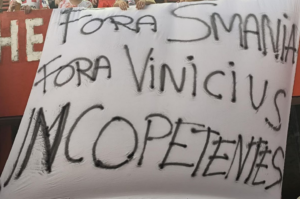 HE
FORA SMANIA
FORA VINICIUS
INCOPETENTES